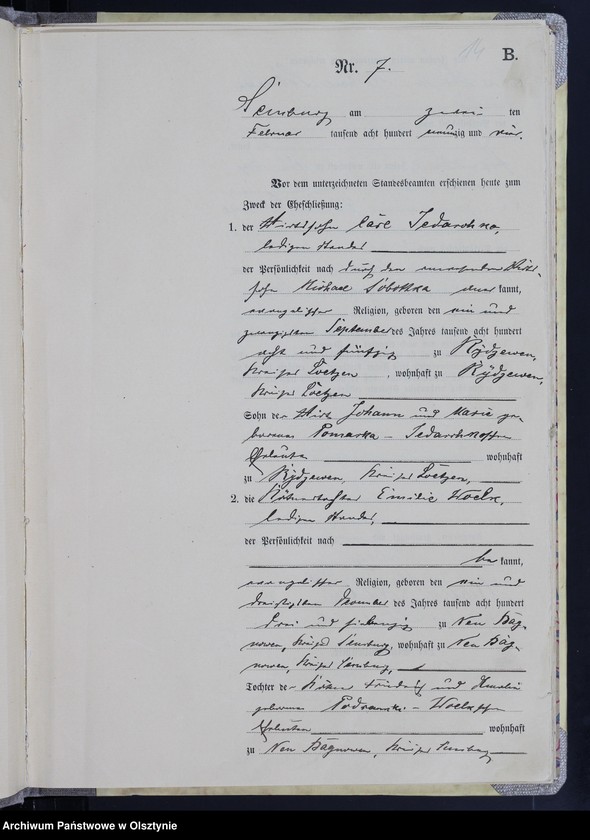 14
B.
Nr. 7.
Sensburg am zwei ten
Februar tausend acht hundert neunzig und vier.
Vor dem unterzeichneten Standesbeamten erschienen heute zum
Zweck der Eheschließung:
1. der Wirthssohn Carl
ledigen Standes
der Persönlichkeit nach durch den
Michael Sobottka kannt,
evangelischer Religion, geboren den ein und
zwanzigsten September des Jahres tausend acht hundert
acht und fünfzig zu Rydzewen,
Kreises Loetzen, wohnhaft zu Rydzewen,
Kreises Loetzen
Sohn der Wirth Johann und Marie ge-
borenen
Eheleute wohnhaft
zu Rydzewen, Kreises Loetzen,
2. die Käthnertochter Emilie Woelk,
ledigen Standes,
der Persönlichkeit nach
be kannt,
evangelischer Religion, geboren den ein und
des Jahres tausend acht hundert
drei und siebenzig zu Neu Bag-
nowen, Kreises Sensburg, wohnhaft zu Neu Bag-
nowen, Kreises Sensburg,
Tochter der Käthner Friedrich und
geborenen
Eheleuten wohnhaft
zu Neu Bagnowen, Kreises Sensburg
Archiwum Państwowe w Olsztynie